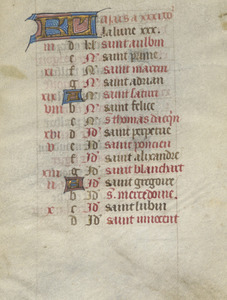 la lune xxx.
iii d kl saint aulbin
e N saint prime
xi f N saint martin
g N saint adrian
xix A N saint
viii b N saint felice
c N s thomas dacqn
xvi d Id saint perpetue
v e Id saint poncien
f Id saint alixandre
xiii g Id saint blanchart
ii A Id saint gregoire
b Id s. merredoine
x c Id saint lubin
d Id saint innocent